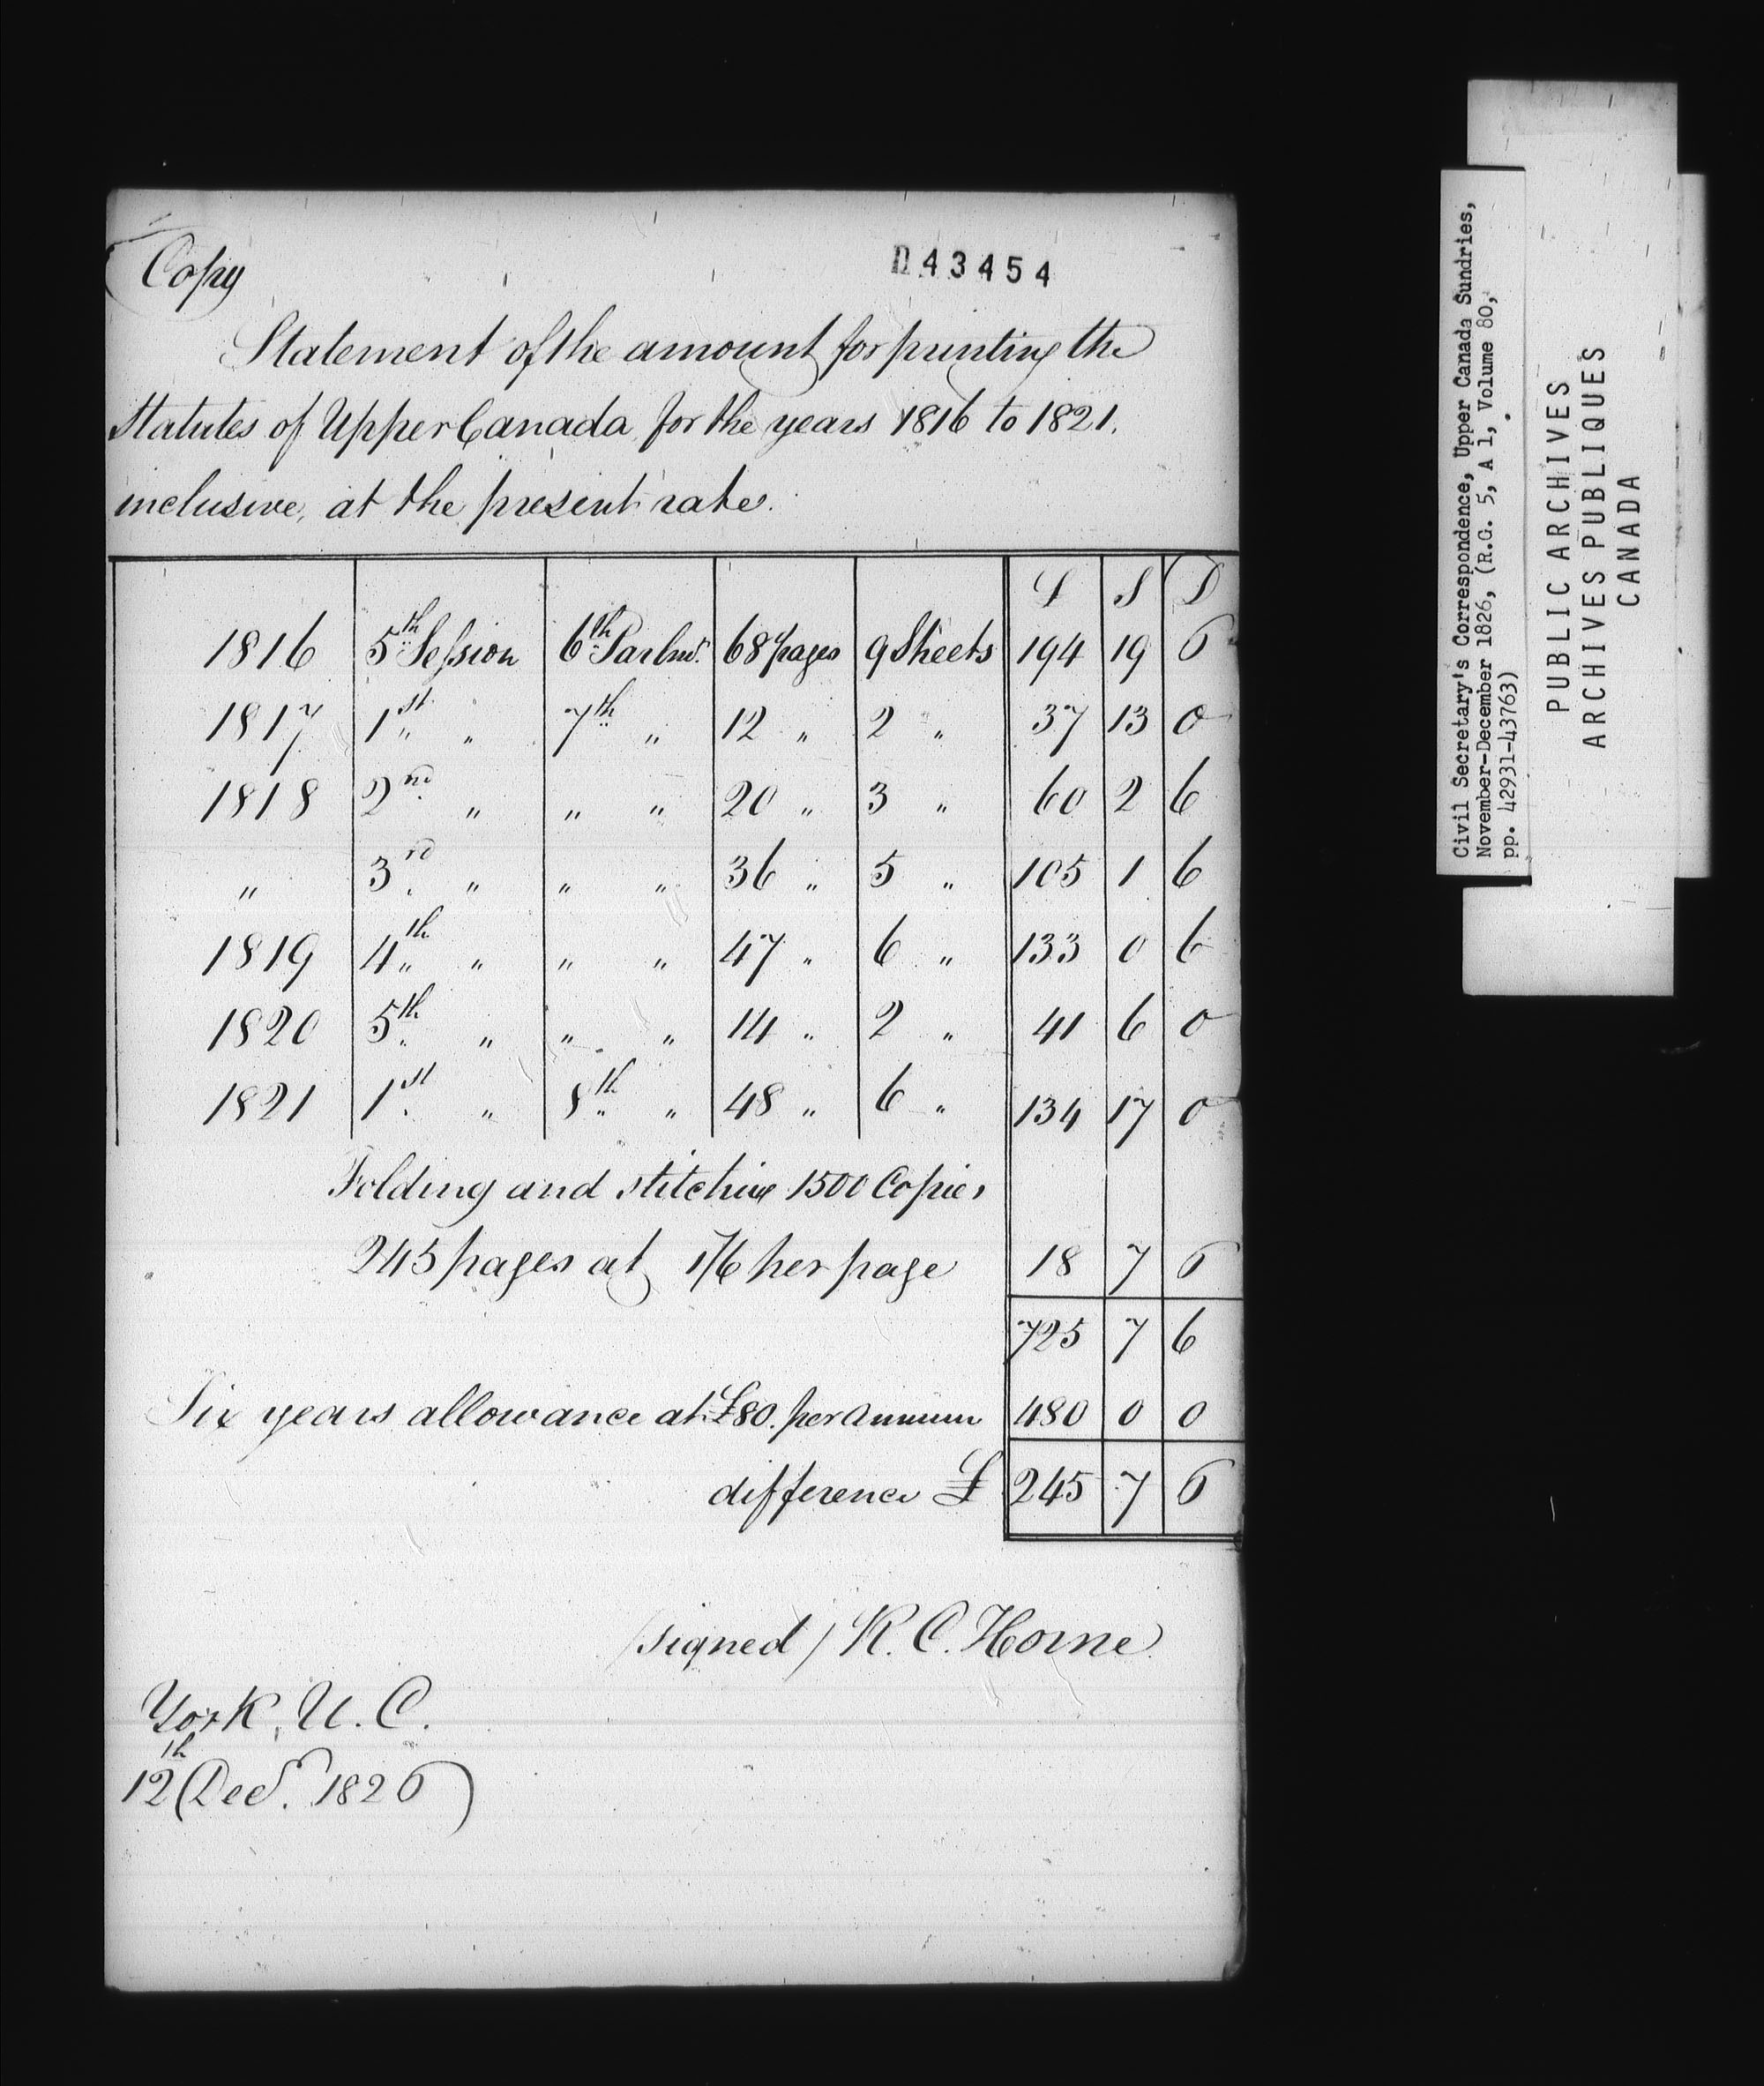 Copy
D43454
Statement of the amount for printing the
Statutes of Upper Canada for the years 1816 to 1821.
inclusive, at the present rate.
£ S D
1816 5th Session 6th Parlmt. 68 pages 9 Sheets 194 19 6
1817 1st " 7th " 12 " 2 " 37 13 0
1818 2nd " " " 20 " 3 " 60 2 6
" 3rd " " " 36 " 5 " 105 1 6
1819 4th " " " 47 " 6 " 133 0 6
1820 5th " " " 14 " 2 " 41 6 0
1821 1st " 8th " 48 " 6 " 134 17 0
Folding and stitching 1500 Copies
245 pages at 1/6 per page 18 7 6
725 7 6
Six years allowance at £80. per annum 480 0 0
difference £ 245 7 6
(signed) R. C. Horne
York, U. C.
12th Decr. 1826
Civil Secretary's Correspondence, Upper Canada Sundries,
November-December 1826, (R.G. 5, A 1, Volume 80,
pp. 42931-43763)
PUBLIC ARCHIVES
ARCHIVES PUBLIQUES
CANADA